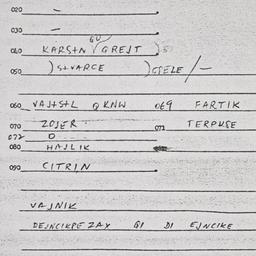 020 —
030 —
GU
040 KARSTN GREJT
050 STVARCE CPELE / —
060 VAJTSTL QKNW 069 FARTIK
070 ZOJER 073 TERPUSE
072 0
080 HAJLIK
090 CITRIN
VAJNIK
DEJNCIKPE ZAX GI DI EJNCIKE